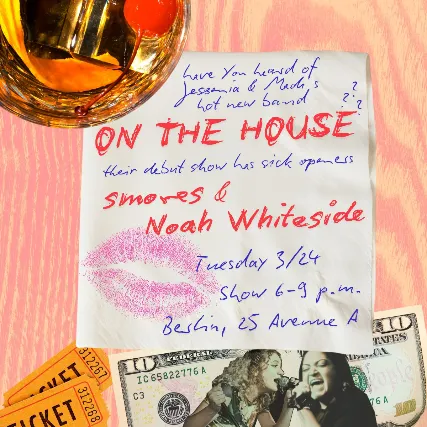 have you heard of
Jessenia & Madi's ?
hot new band ? ?
ON THE HOUSE
their debut show has sick openers
smores &
Noah Whiteside
Tuesday 3/24
Show 6-9 p.m.
Berlin, 25 Avenue A
10 FEDERAL
IC65822776A
C3
STATES
10
TICKET
312267
TICKET
312268